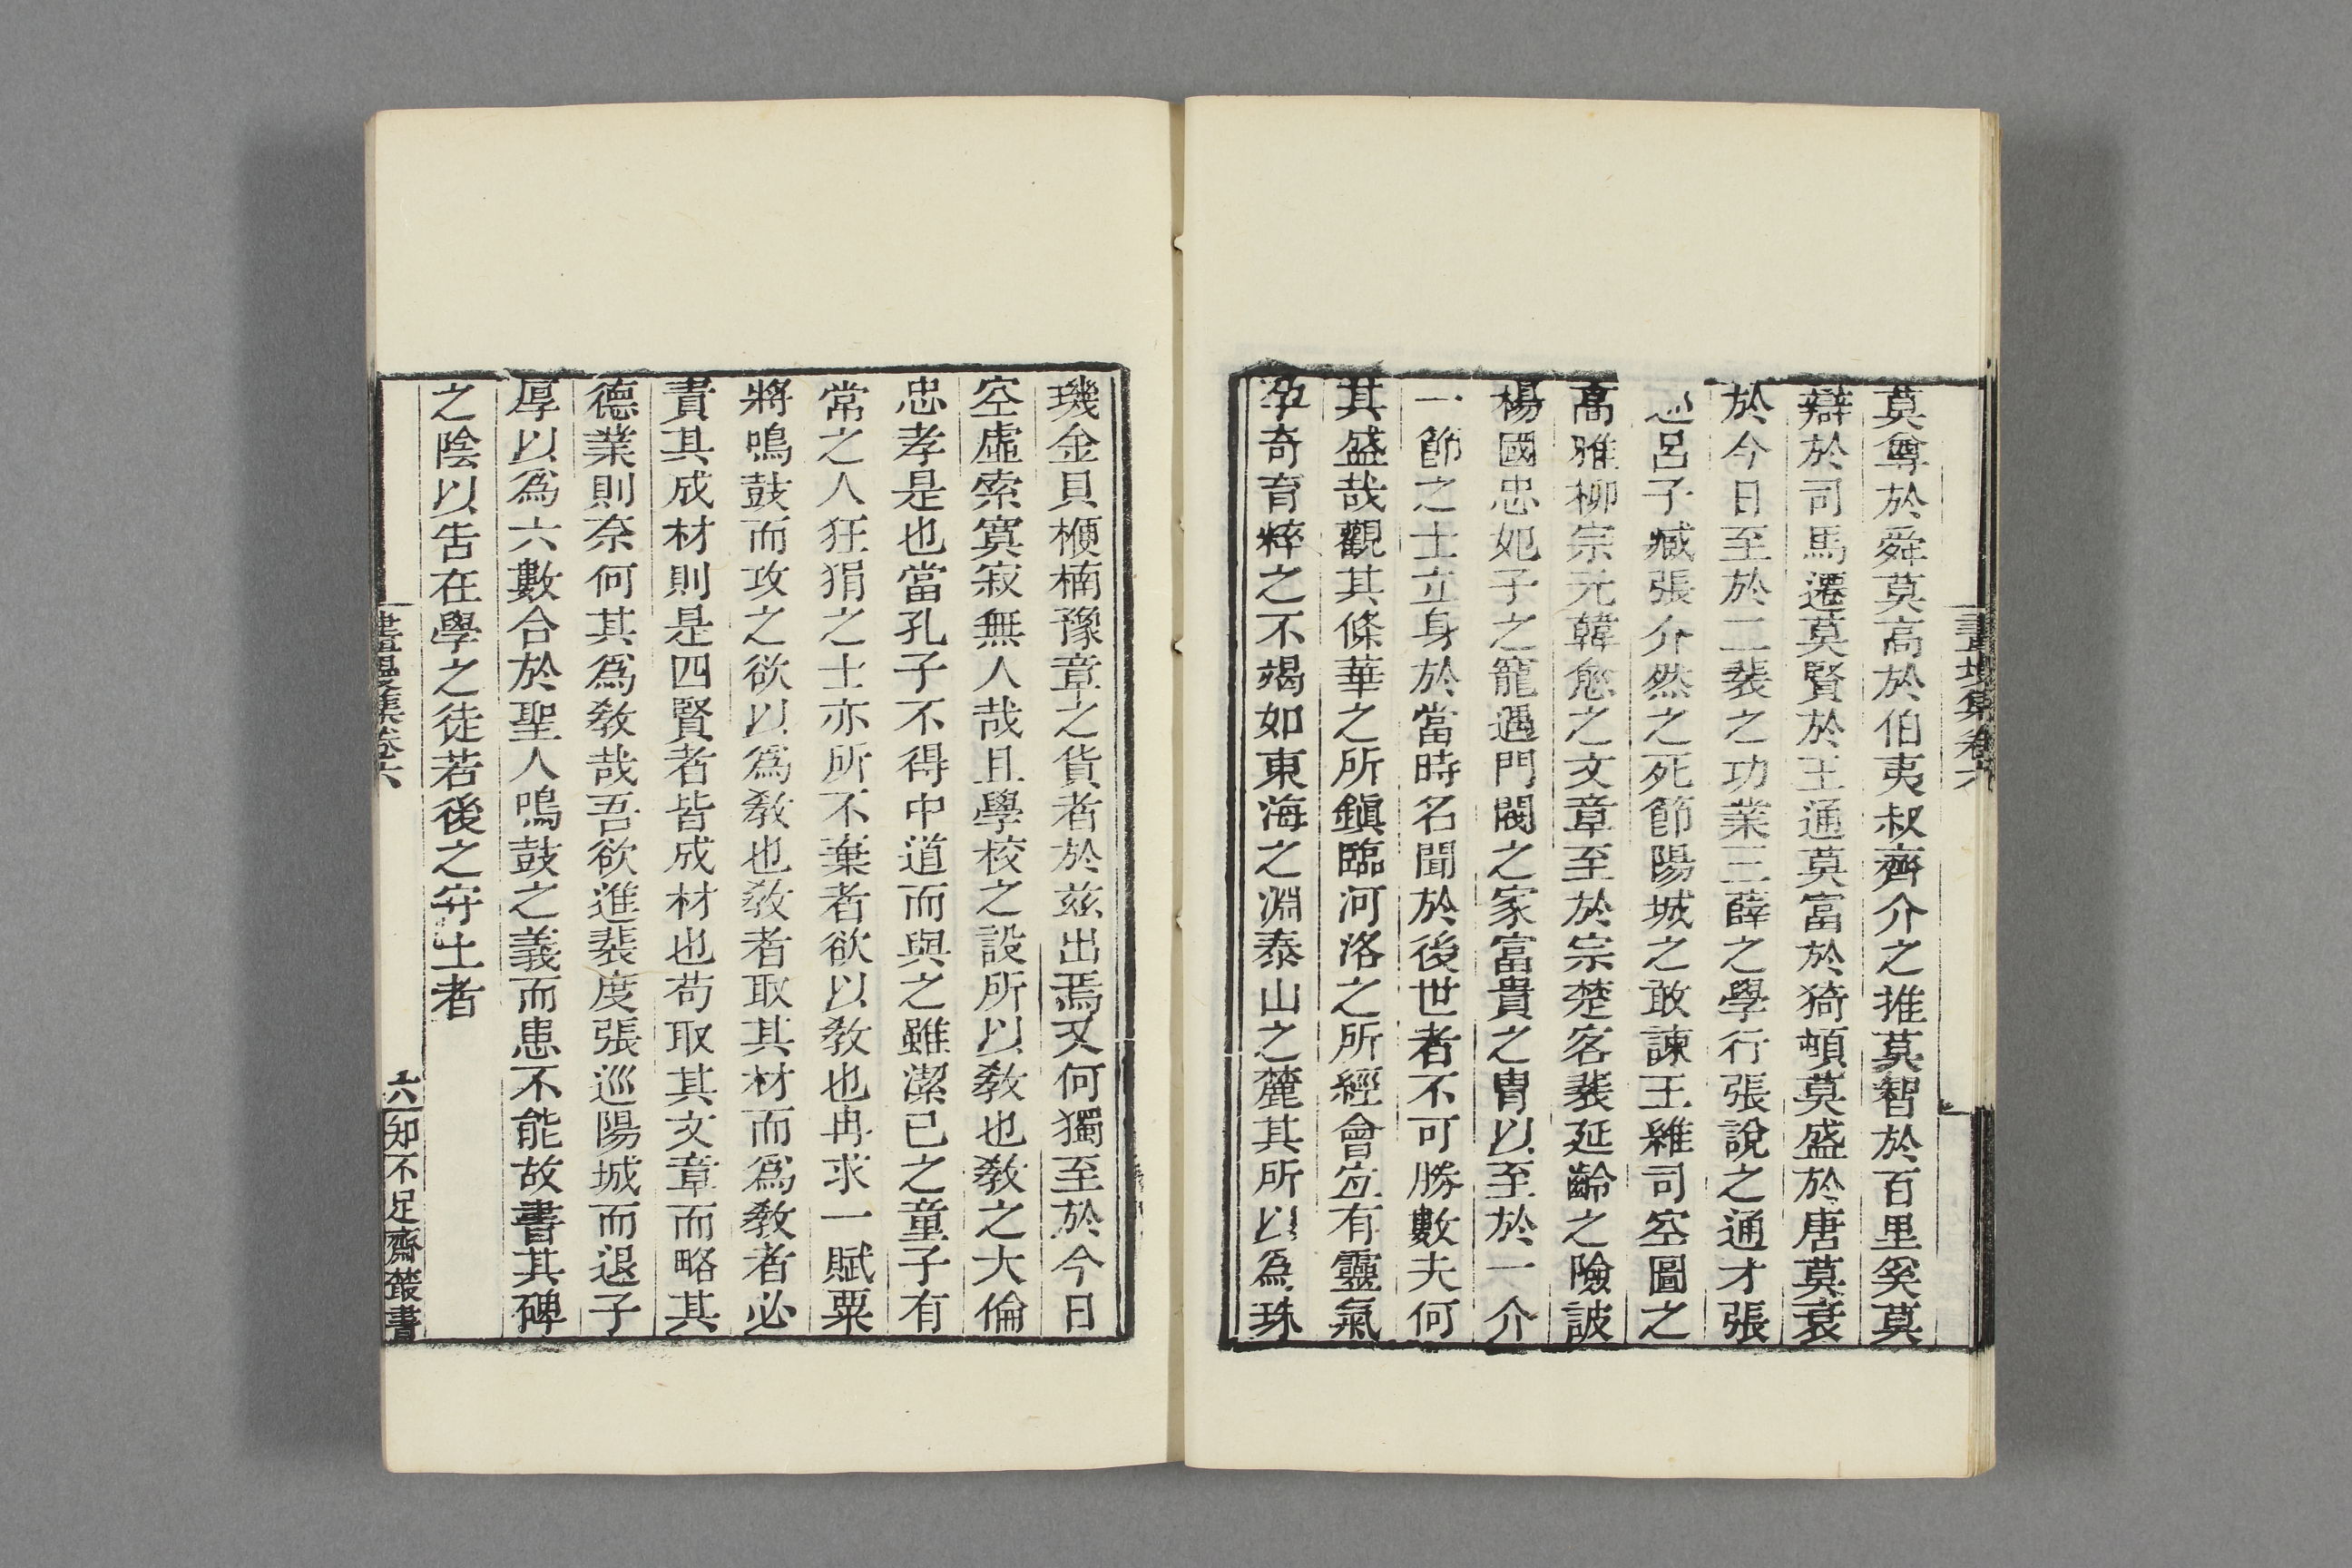 莫尊於舜莫高於伯夷叔齊介之推莫智於百里奚莫
辯於司馬遷莫賢於王通莫富於猗頓莫盛於唐莫衰
於今日至於二裴之功業三薛之學行張說之通才張
巡呂子臧張介然之死節陽城之敢諫王維司空圖之
高雅柳宗元韓愈之文章至於宗楚客裴延齡之險詖
楊國忠妃子之寵遇門閥之家富貴之胄以至於一介
一節之士立身於當時名聞於後世者不可勝數夫何
其盛哉觀其條華之所鎭臨河洛之所經會宜有靈氣
孕奇育粹之不竭如東海之淵泰山之麓其所以爲珠
璣金貝楩楠豫章之貨者於兹出焉又何獨至於今日
空虛索寞寂無人哉且學校之設所以敎也敎之大倫
忠孝是也當孔子不得中道而與之雖潔已之童子有
常之人狂狷之士亦所不棄者欲以敎也冉求一賦粟
將鳴鼓而攻之欲以爲敎也敎者取其材而爲敎者必
責其成材則是四賢者皆成材也苟取其文章而略其
德業則奈何其爲敎哉吾欲進裴度張巡陽城而退子
厚以爲六數合於聖人鳴鼓之義而患不能故書其碑
之陰以吿在學之徒若後之守土者
畫墁集卷六
六
知不足齋叢書